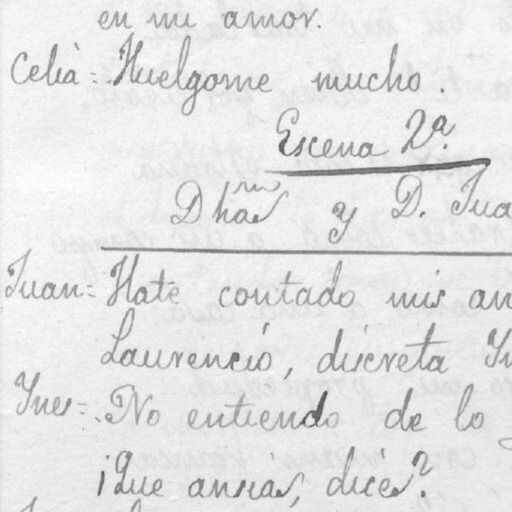 en mi amor.
Celià = Huelgome mucho.
Escena 2ª.
Dhas y D. Jua
Juan = Hate contado mis an
Laurencio, discreta Yn
Ynes = No entiendo de lo
¡Que ansias, dices?